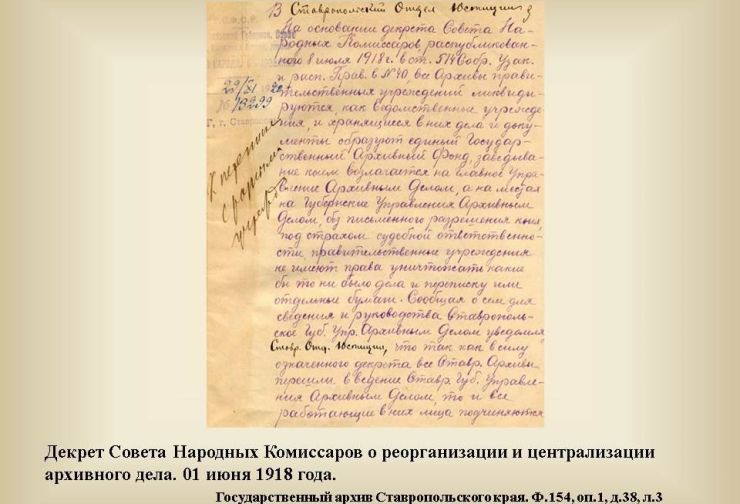 В Ставропольский Отдел Юстиции
На основании декрета Совета На-
родных Комиссаров, распубликован-
ного 8 июля 1918 г. в ст. 514 Собр. Узак.
и расп. Прав. в № 40, все Архивы прави-
тельственных учреждений ликвиди-
руются, как ведомственные учрежде-
ния, и хранящиеся в них дела и доку-
менты образуют единый Государ-
ственный Архивный Фонд, заведыва-
ние коим возлагается на Главное Упра-
вление Архивным Делом, а на местах
на Губернские Управления Архивным
Делом, без письменного разрешения коих,
под страхом судебной ответственно-
сти, правительственные учреждения
не имеют права уничтожать какие
бы то ни было дела и переписку или
отдельные бумаги. Сообщая о сем для
сведения и руководства Ставрополь-
ское Губ. Упр. Архивным Делом уведомляет
Ставр. Отд. Юстиции, что так как в силу
означенного декрета все Ставр. Архивы
перешли в ведение Ставр. Губ. Управле-
ния Архивным Делом, то и все
работающие в них лица подчиняются
№ 13299
г. Ставрополь
К переписке
с разными
Декрет Совета Народных Комиссаров о реорганизации и централизации
архивного дела. 01 июня 1918 года.
Государственный архив Ставропольского края. Ф.154, оп.1, д.38, л.3